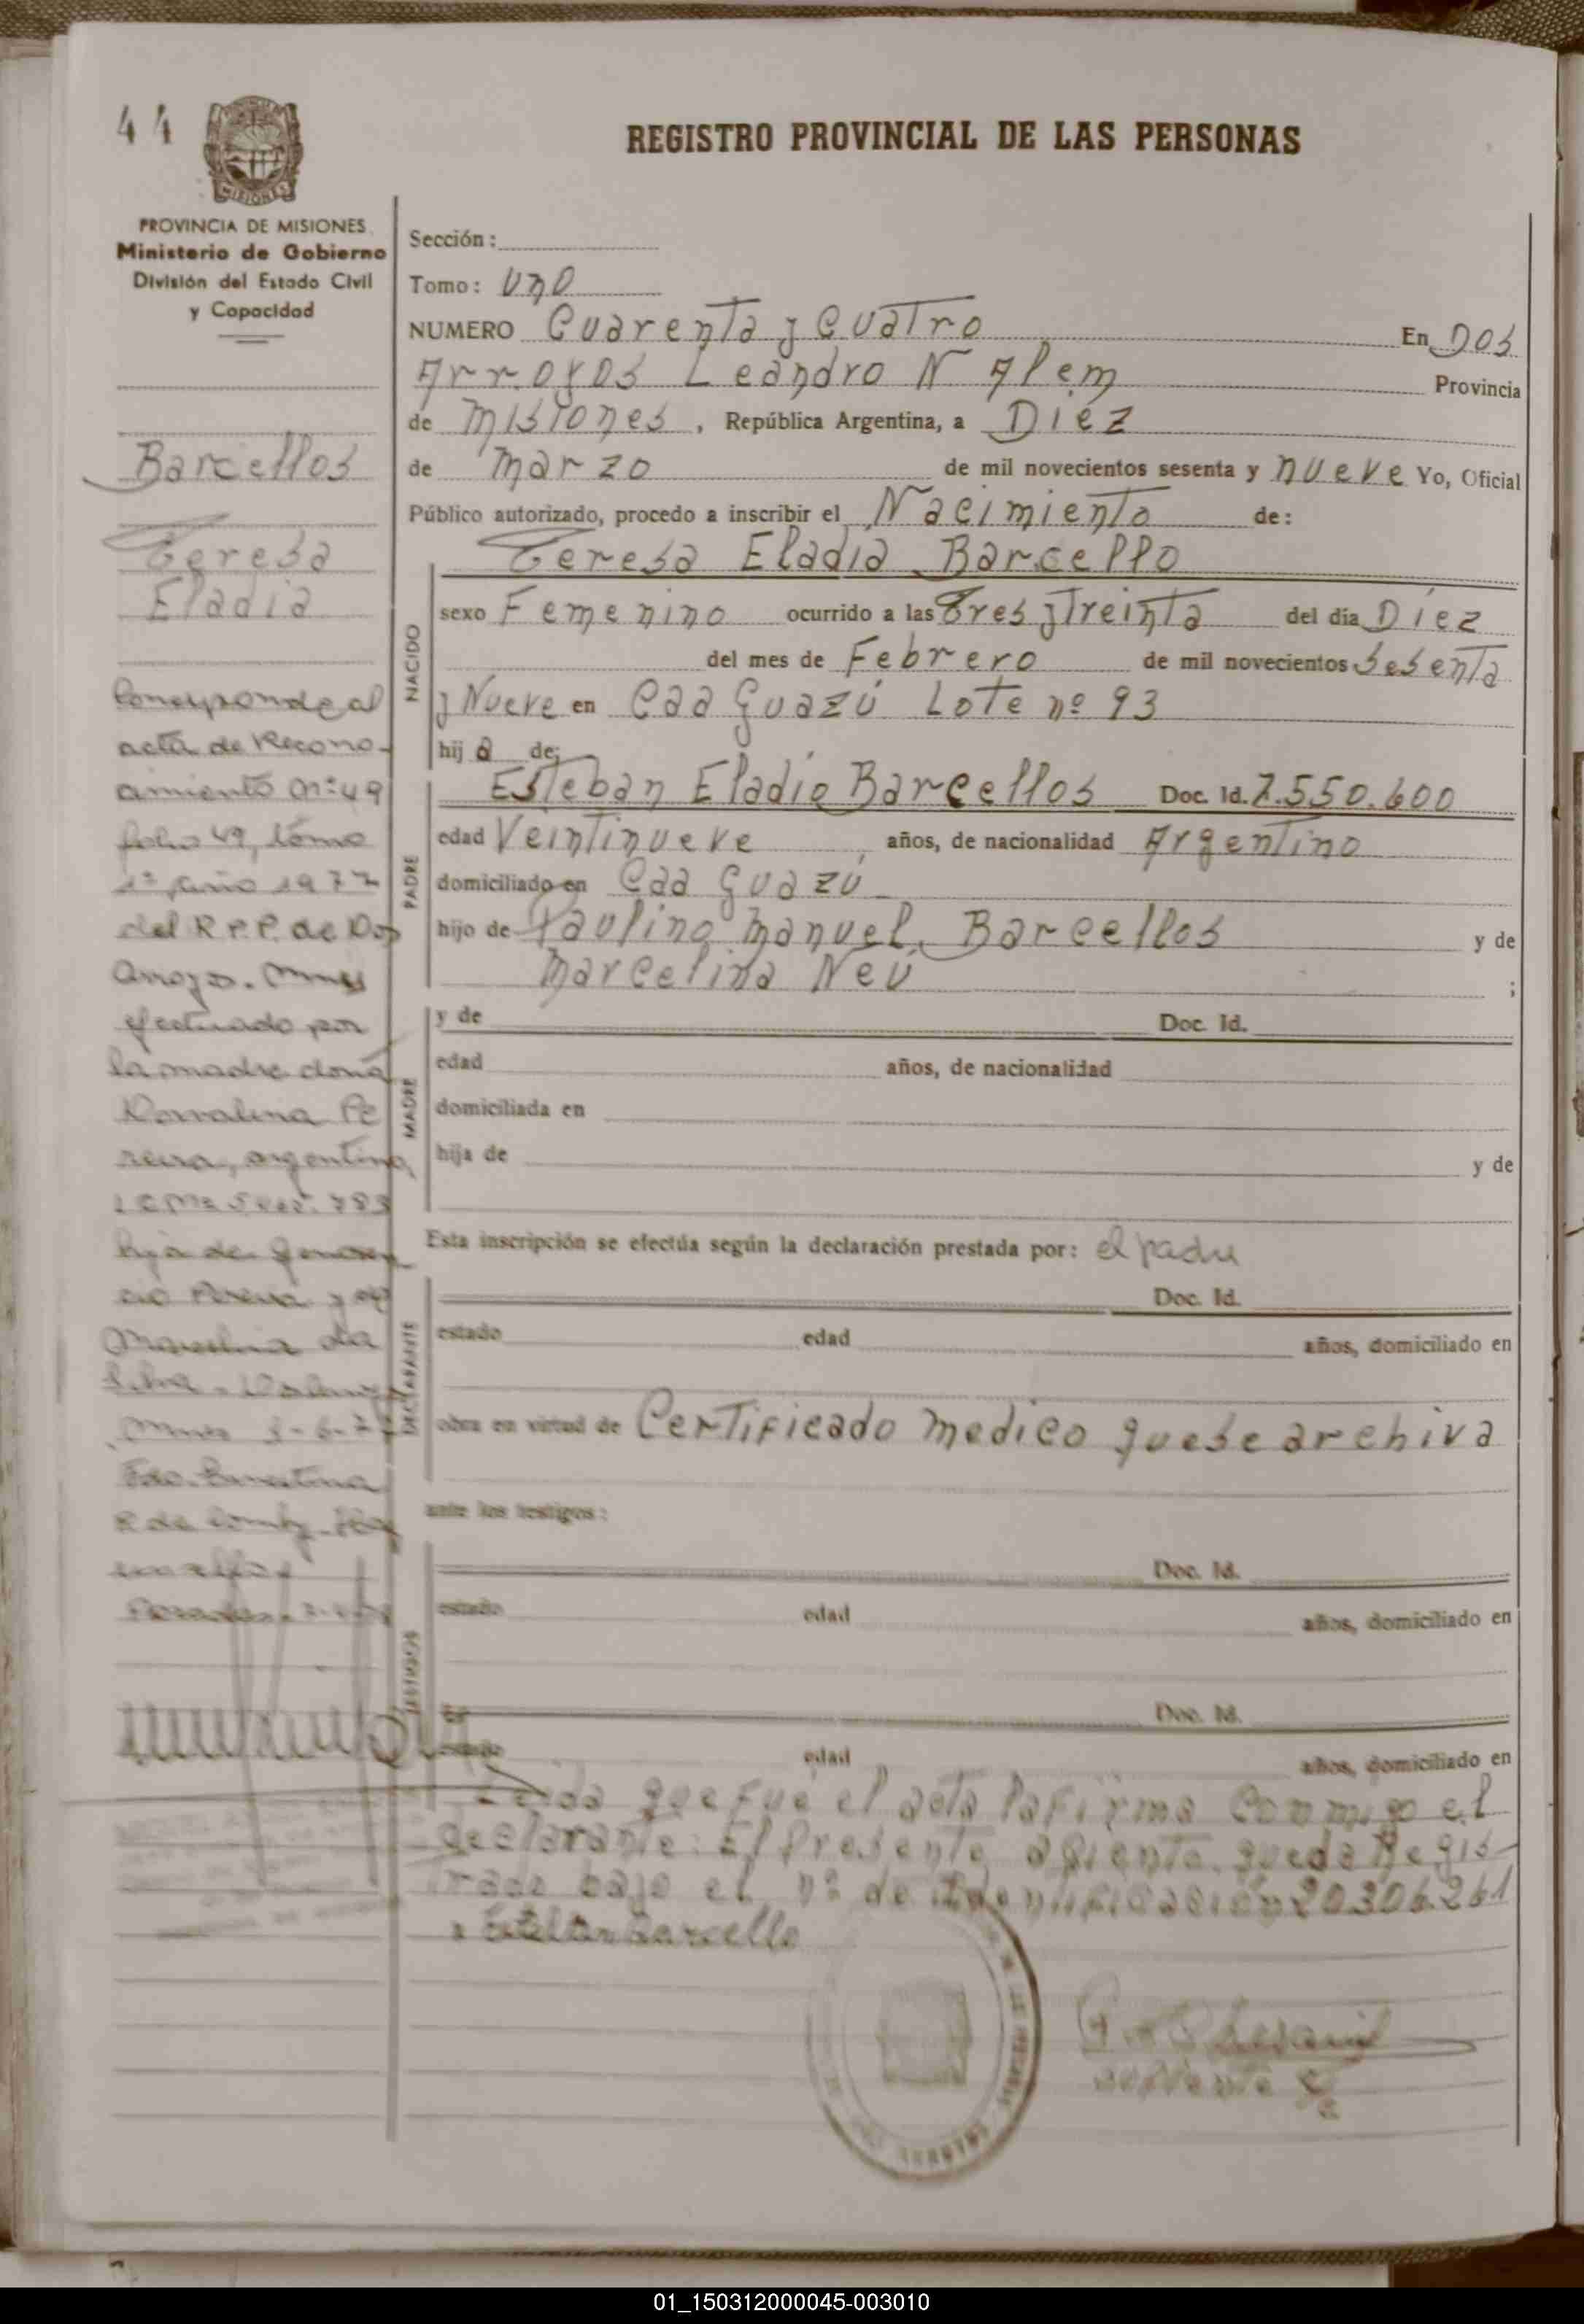 44
MISIONES
PROVINCIA DE MISIONES
Ministerio de Gobierno
División del Estado Civil
y Capacidad
Barcellos
Teresa
Eladia
Corresponde al
acta de Recono-
cimiento Nº 49
folio 49, tomo
1º año 1977
del R.P.P. de Dos
Arroyos. Mnes
efectuado por
la madre doña
Dorvalina Pe
reira, argentina,
hija de
cio Pereira y de
Marcelina da
Silva.
REGISTRO PROVINCIAL DE LAS PERSONAS
Sección:
Tomo: Uno
NUMERO Cuarenta y Cuatro En Dos
Arroyos Leandro N Alem Provincia
de Misiones, República Argentina, a Diez
de Marzo de mil novecientos sesenta y nueve Yo, Oficial
Público autorizado, procedo a inscribir el Nacimiento de:
Teresa Eladia Barcello
NACIDO
sexo Femenino ocurrido a las Tres y Treinta del día Diez
del mes de Febrero de mil novecientos Sesenta
y Nueve en Caa Guazú Lote nº 93
hija de:
PADRE
Esteban Eladio Barcellos Doc. Id. 7.550.600
edad Veintinueve años, de nacionalidad Argentino
domiciliado en Caa Guazú
hijo de Paulino Manuel Barcellos y de
Marcelina Neú ;
MADRE
y de Doc. Id.
edad años, de nacionalidad
domiciliada en
hija de y de
Esta inscripción se efectúa según la declaración prestada por: el padre
DECLARANTE
Doc. Id.
estado edad años, domiciliado en
obra en virtud de Certificado medico que se archiva
ante los testigos:
TESTIGOS
Doc. Id.
estado edad años, domiciliado en
Doc. Id.
estado edad años, domiciliado en
Leida que fué el acta la firma Conmigo el
declarante: El Presente asiento queda Regis-
trado bajo el nº de Identificación 20306261
Esteban Barcello
01_150312000045-003010